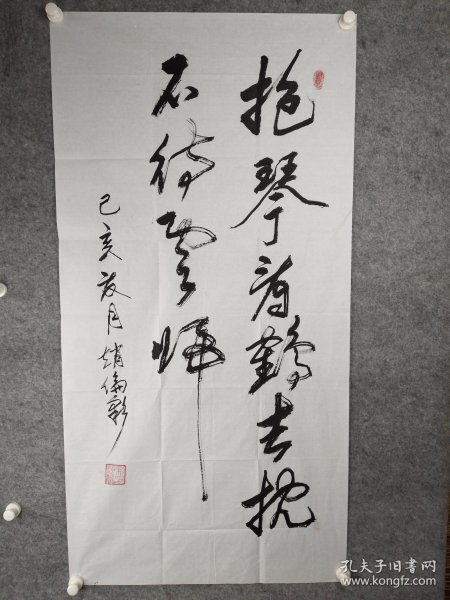 抱琴看鹤去枕
石待云归
己亥 月赵伦彩
孔夫子旧书网
www.kongfz.com